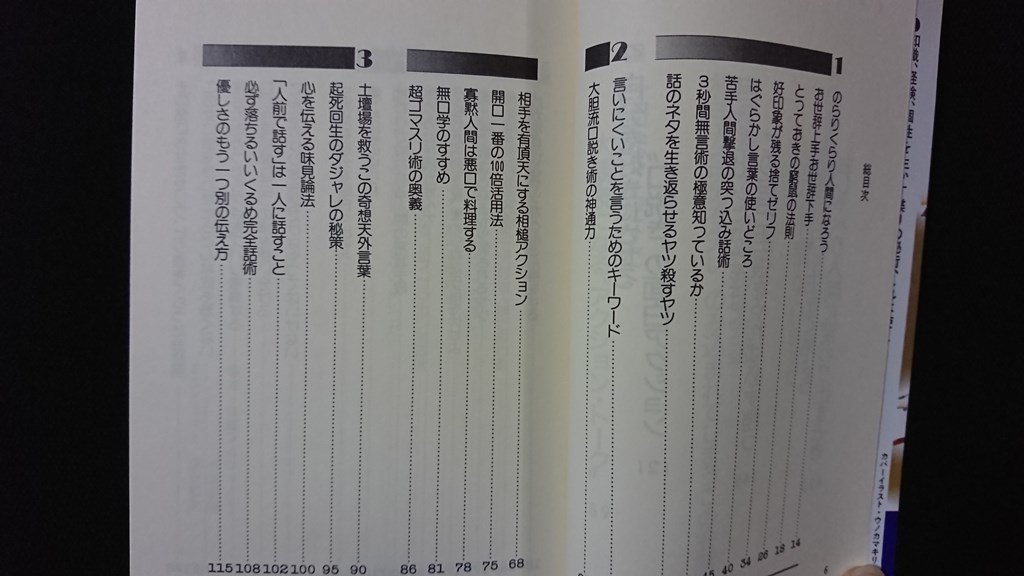 総目次
1
のらりくらり人間になろう 6
お世辞上手お世辞下手 14
とっておきの窮鼠の法則 18
好印象が残る捨てゼリフ 26
はぐらかし言葉の使いどころ 34
苦手人間撃退の突っ込み話術 40
3秒間無言術の極意知っているか
話のネタを生き返らせるヤツ殺すヤツ
2
言いにくいことを言うためのキーワード
大胆流口説き術の神通力
相手を有頂天にする相槌アクション 68
開口一番の100倍活用法 75
寡黙人間は悪口で料理する 78
無口学のすすめ 81
超ゴマスリ術の奥義 86
3
土壇場を救うこの奇想天外言葉 90
起死回生のダジャレの秘策 95
心を伝える味見論法 100
「人前で話す」は一人に話すこと 102
必ず落ちるいいくるめ完全話術 108
優しさのもう一つ別の伝え方 115
カバーイラスト・ウノカマキリ